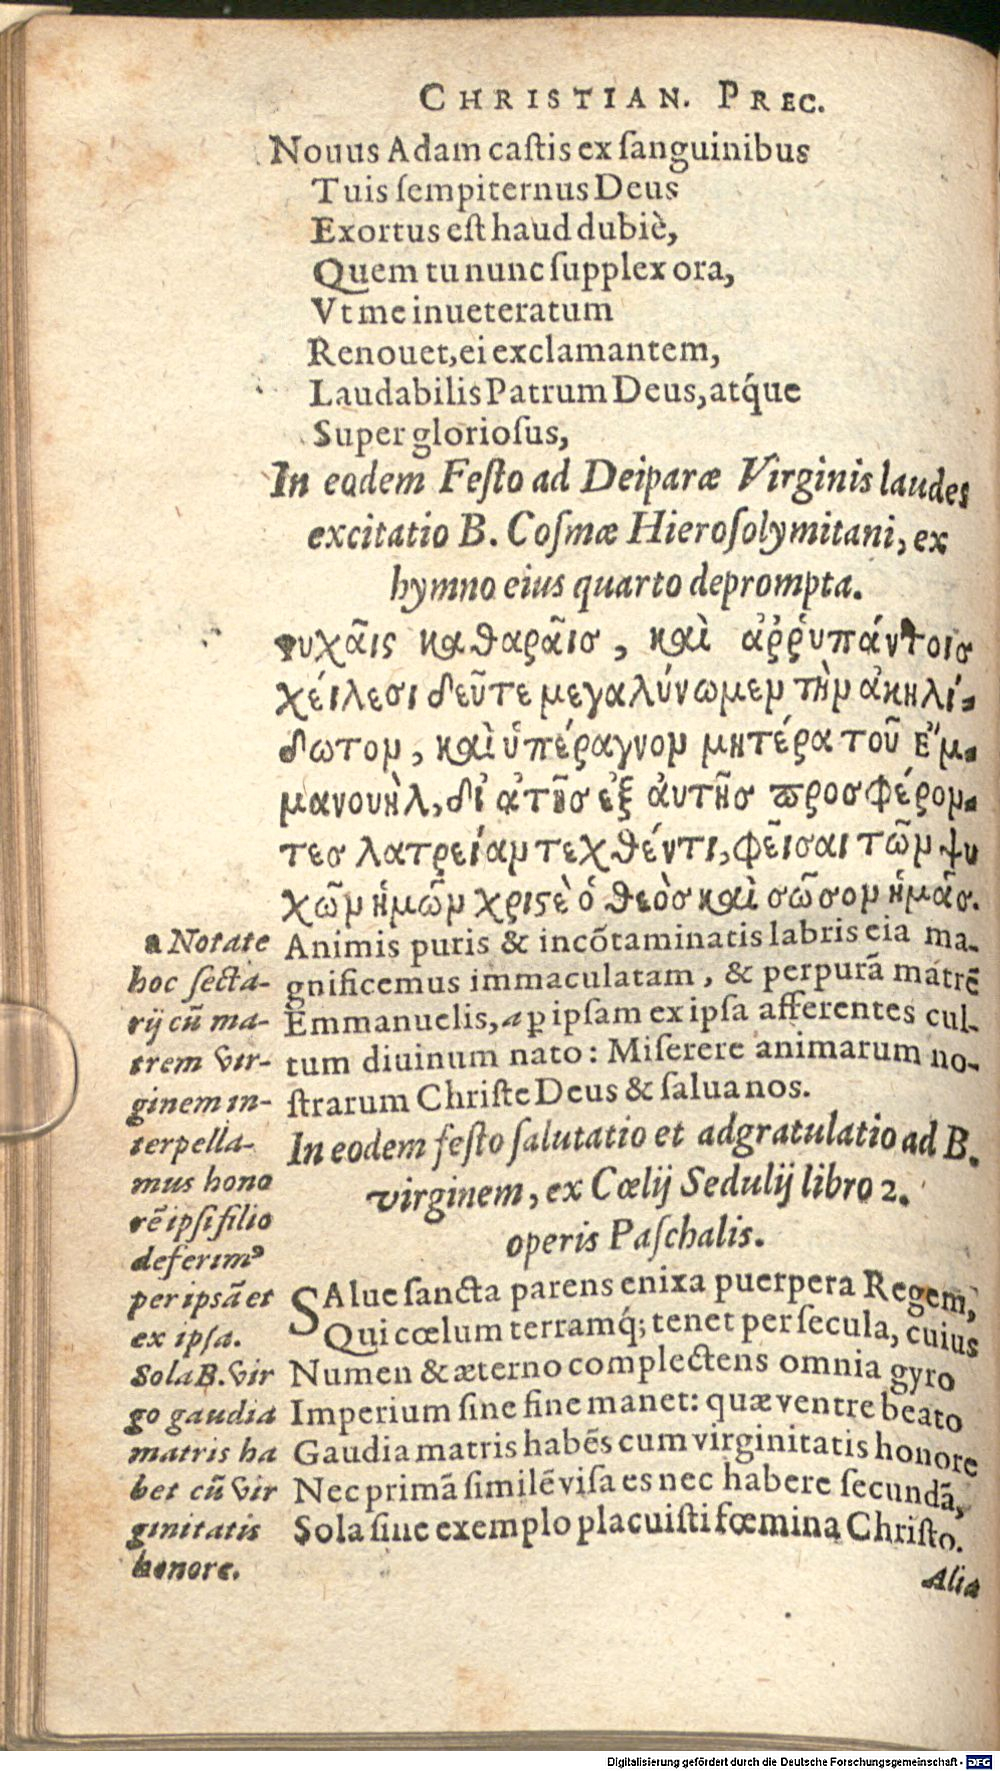 CHRISTIAN. PREC.
Nouus Adam castis ex sanguinibus
Tuis sempiternus Deus
Exortus est haud dubiè,
Quem tu nunc supplex ora,
Vt me inueteratum
Renouet, ei exclamantem,
Laudabilis Patrum Deus, atq́ue
Super gloriosus,
In eodem Festo ad Deiparæ Virginis laudes
excitatio B. Cosmæ Hierosolymitani, ex
hymno eius quarto deprompta.
ψυχᾶις καθαρᾶισ, καὶ ἀῤῥυπάντοισ
χέιλεσι δεῦτε μεγαλύνωμεν τὴν ἀκηλί-
δωτον, καὶ ὑπέραγνον μητέρα τοῦ Ε῎μ-
μανουὴλ, δἰ ἀτῆσ ἐξ ἀυτῆσ προσφέρον-
τεσ λατρείαν τεχθέντι, φεῖσαι τῶν ψυ
χῶν ἡμῶν χριϛὲ ὁ θεὸσ καὶ σῶσον ἡμᾶσ.
Animis puris & incõtaminatis labris eia ma-
gnificemus immaculatam, & perpurã matrẽ
Emmanuelis, a ꝑ ipsam ex ipsa afferentes cul-
tum diuinum nato: Miserere animarum no-
strarum Christe Deus & salua nos.
In eodem festo salutatio et adgratulatio ad B.
virginem, ex Cœlij Sedulij libro 2.
operis Paschalis.
SAlue sancta parens enixa puerpera Regem,
Qui cœlum terramq́; tenet per secula, cuius
Numen & æterno complectens omnia gyro
Imperium sine fine manet: quæ ventre beato
Gaudia matris habẽs cum virginitatis honore
Nec primã similẽ visa es nec habere secundã,
Sola sine exemplo placuisti fœmina Christo.
Alia
a Notate
hoc secta-
rij cũ ma-
trem vir-
ginem in-
terpella-
mus hono
rẽ ipsi filio
deferimꝰ
per ipsã et
ex ipsa.
Sola B. vir
go gaudia
matris ha
bet cũ vir
ginitatis
honore.
Digitalisierung gefördert durch die Deutsche Forschungsgemeinschaft - DFG